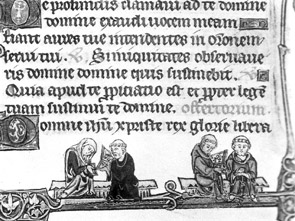 De profundis clamavi ad te domine
domine exaudi vocem meam
fiant aures tue intendentes in oronem
servi tui. Si iniquitates observave
ris domine domine quis sustinebit.
Quia apud te ppitiatio est et ppter legē
tuam sustinui te domine. offertorium.
Domine ihū xpriste rex glorie libera